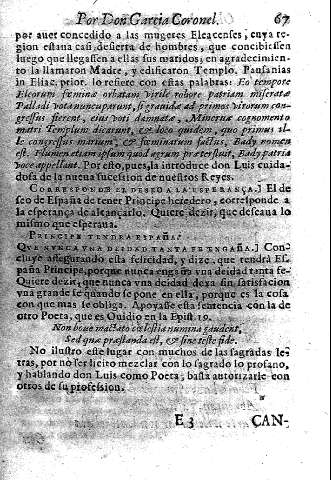 Por Don Garcia Coronel. 67
por auer concedido a las mugeres Eleacenses, cuya re-
gion estaua casi desierta de hombres, que concibiessen
luego que llegassen a ellas sus maridos; en agradecimien-
to la llamaron Madre, y edificaron Templo. Pausanias
in Eliac. prior. lo refiere con estas palabras: Eo tempore
Eleorum fœminæ orbatam virile robore patriam miseratæ
Palladi vota nuncuparunt, si grauidæ ad primos virorum con-
gressus fierent, eius voti damnatæ, Mineruæ cognomento
matri Templum dicarunt, & loco quidem, quo primus il-
le congressus marium, & fœminarum factus, Bady nomen
est. Flumen etiam ipsum quod agrum præterfluit, Bady patria
voce appellant. Por esto, pues, la introduce don Luis cuida-
dosa de la nueua sucession de nuestros Reyes.
CORRESPONDE EL DESEO A LA ESPERANÇA.] El de
seo de España de tener Principe heredero, corresponde a
la esperança de alcançarlo. Quiere dezir, que deseaua lo
mismo que esperaua.
PRINCIPE TENDRA ESPAÑA:
QVE NVNCA VNA DEIDAD TANTA FE ENGAÑA.] Con-
cluye assegurando esta felicidad, y dize, que tendrà Es-
paña Principe, porque nunca engaña vna deidad tanta fe-
Quiere dezir, que nunca vna deidad dexa sin satisfacion
vna grande fe quando se pone en ella, porque es la cosa
con que mas se obliga. Apoyasse esta sentencia con la de
otro Poeta, que es Ouidio en la Epist. 19.
Non boue mactato cœlestia numina gaudent,
Sed quæ præstanda est, & sine teste fide.
No ilustro este lugar con muchos de las sagradas le-
tras, por no ser licito mezclar con lo sagrado lo profano,
y hablando don Luis como Poeta, basta autorizarle con
otros de su profession.
E 3 CAN-